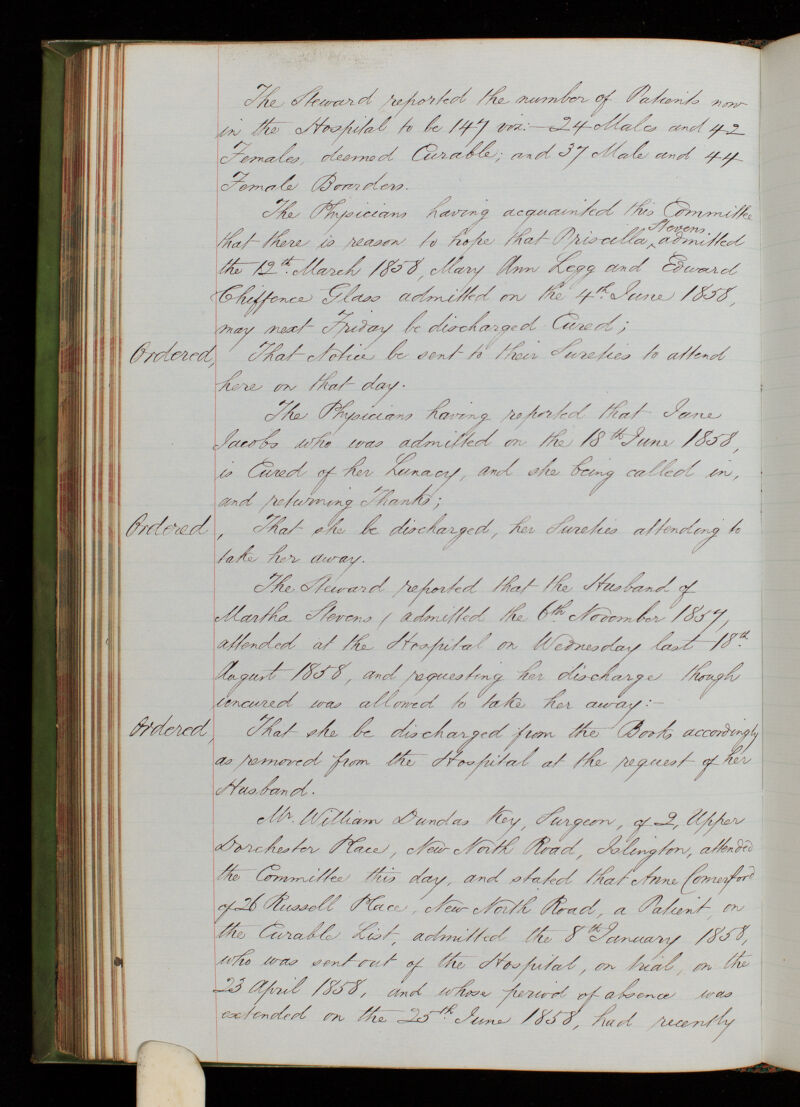 The Steward reported the number of Patients now
in the Hospital to be 147 viz:— 24 Males and 42
Females, deemed Curable; and 37 Male and 44
Female Boarders.
The Physicians having acquainted this Committee
that there is reason to hope that Priscilla Stevens admitted
the 12th. March 1858, Mary Ann Legg and Edward
Chiffence Glass admitted on the 4th. June 1858,
may next Friday be discharged Cured;
Ordered, That Notice be sent to their Sureties to attend
here on that day.
The Physicians having reported that Jane
Jacobs who was admitted on the 18th June 1858,
is Cured of her Lunacy, and she being called in,
and returning Thanks;
Ordered, That she be discharged, her Sureties attending to
take her away.
The Steward reported that the Husband of
Martha Stevens, admitted the 6th November 1857,
attended at the Hospital on Wednesday last 18th.
August 1858, and requesting her discharge though
uncured was allowed to take her away:—
Ordered, That she be discharged from the Books accordingly
as removed from the Hospital at the request of her
Husband.
Mr. William Dundas Key, Surgeon, of 2, Upper
Dorchester Place, New North Road, Islington, attended
the Committee this day, and stated that Anne Comerford
of 26 Russell Place, New North Road, a Patient, on
the Curable List, admitted the 8th January 1858,
who was sent out of the Hospital, on trial, on the
23 April 1858, and whose period of absence was
extended on the 25th. June 1858, had recently